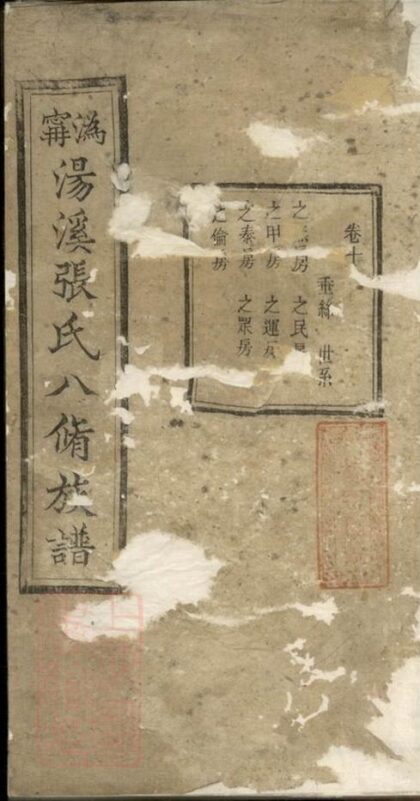 溈寗湯溪張氏八脩族譜
卷十
垂絲 世系
之 房 之民房
之甲房 之運房
之泰房 之眾房
之倫房